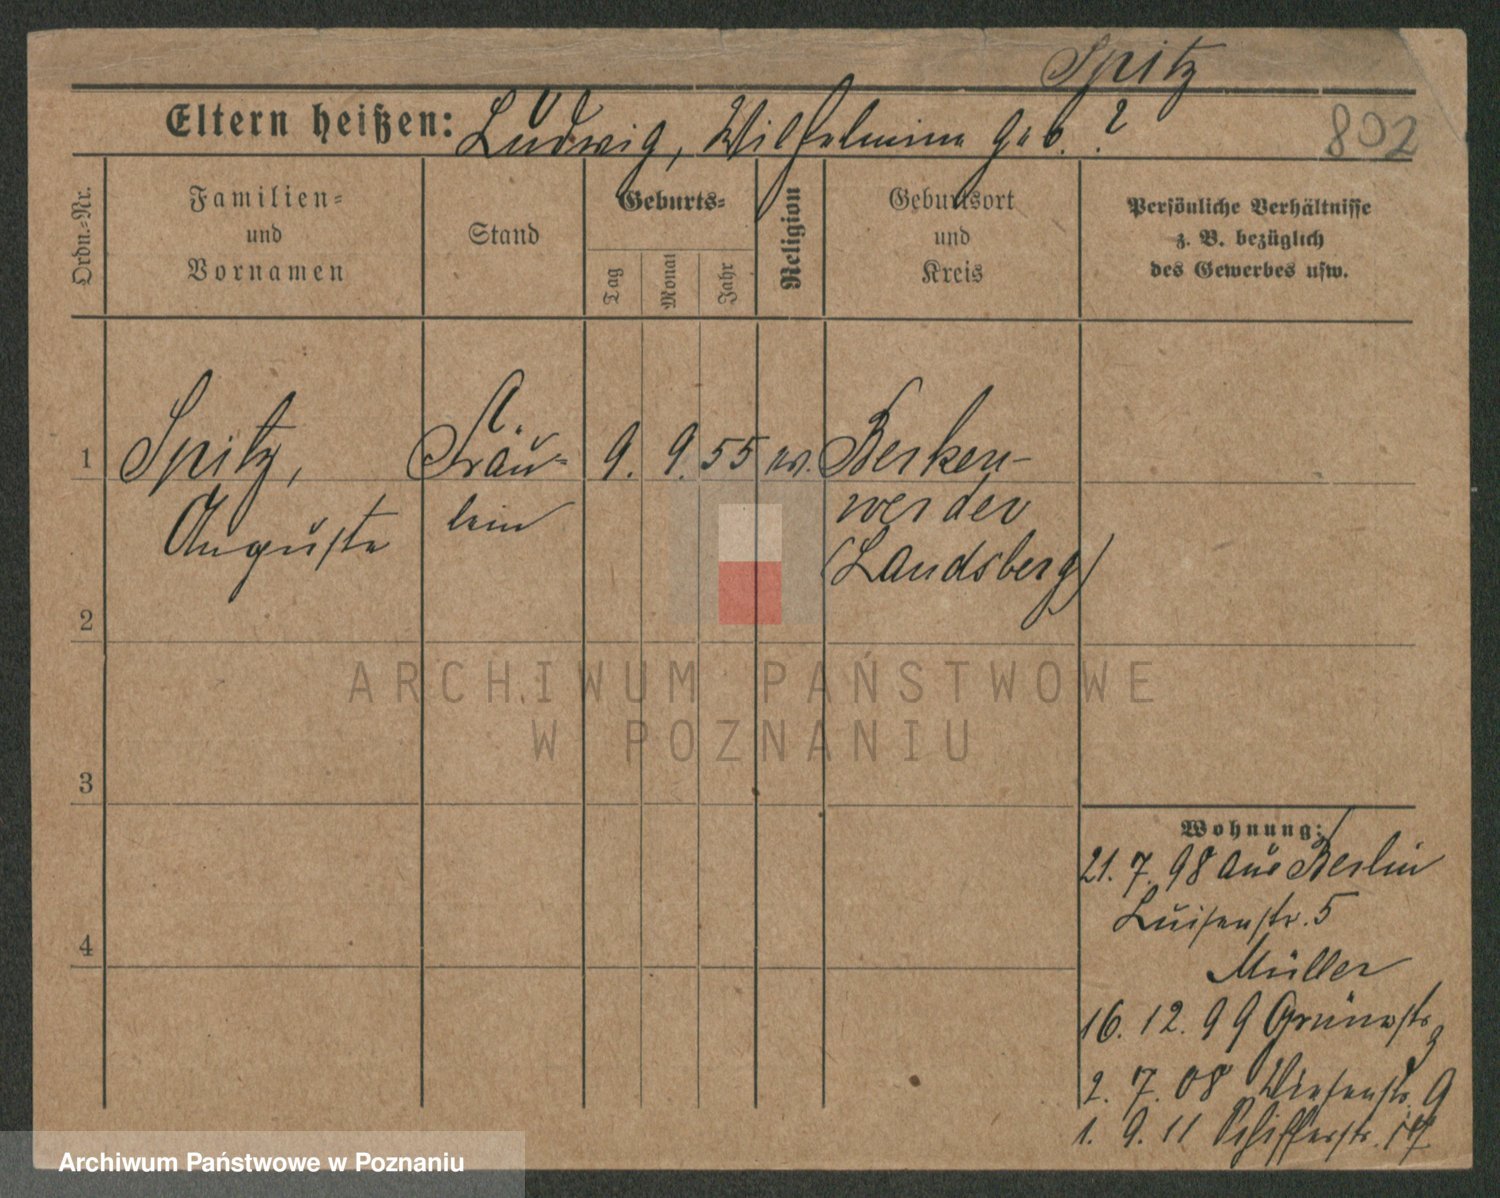 Spitz
Eltern heißen: Ludwig, Wilhelmine geb. ?
802
Ordn.-Nr.
Familien-
und
Vornamen
Stand
Geburts-
Tag
Monat
Jahr
Religion
Geburtsort
und
Kreis
Persönliche Verhältnisse
z. B. bezüglich
des Gewerbes usw.
1
Spitz,
Auguste
Fräu-
lein
9.
9.
55
Berken-
werder
(Landsberg)
2
3
4
ARCHIWUM PAŃSTWOWE
W POZNANIU
Wohnung:
21. 7. 98 aus Berlin
Luisenstr. 5
Müller
16. 12. 99 Grünestr
2. 7. 08 Wiesenstr. 9
1. 9. 11 Schifferstr.
Archiwum Państwowe w Poznaniu